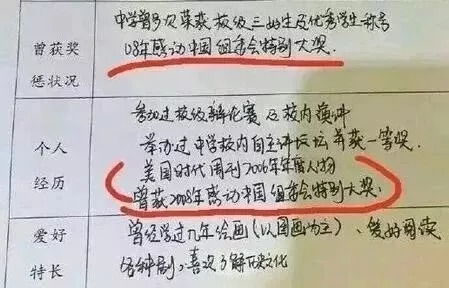 中学曾多次荣获校级三好生及优秀学生称号
曾获奖
08年感动中国组委会特别大奖.
惩状况
参加过校级辩论赛及校内演讲
举办过中学校内自主讲坛并获一等奖.
个人
美国时代周刊2006年年度人物
经历
曾获2008年感动中国组委会特别大奖.
爱好
曾经学过几年绘画(以国画为主)、爱好阅读
特长
各种剧、喜欢了解历史文化